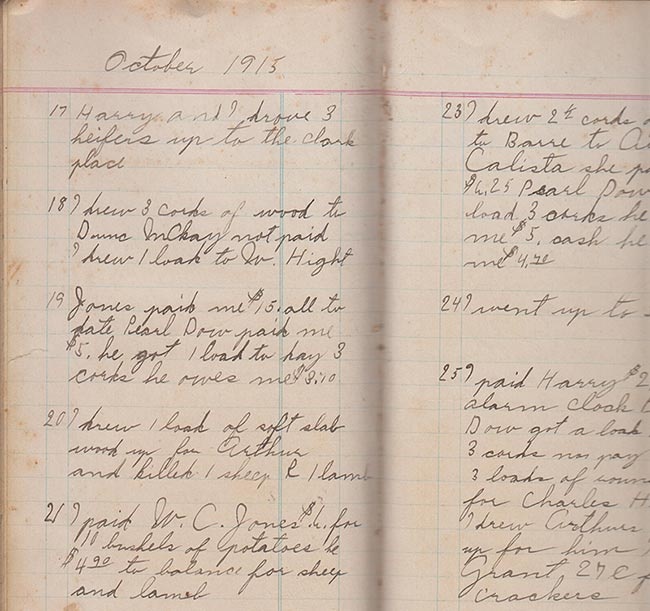 October 1915
17 Harry and I drove 3
heifers up to the Clark
place
18 I drew 3 cords of wood to
Dunc McKay not paid
I drew 1 load to W. Hight
19 Jones paid me $15. all to
date Pearl Dow paid me
$5. he got 1 load to day 3
cords he owes me $3.70
20 I drew 1 load of soft slab
wood up for Arthur
and killed 1 sheep & 1 lamb
21 I paid W. C. Jones $6. for
10 bushels of potatoes he
$4.90 to balance for sheep
and lamb
23 I drew 2 cords
to Barre to
Calista she
$6.25 Pearl Dow
load 3 cords he
me $5. cash he
me $4.70
24 I went up to
25 I paid Harry $2
alarm clock
Dow got a load
3 cords no pay
3 loads of
for Charles H
I drew Arthurs
up for him
Grant 27¢
crackers